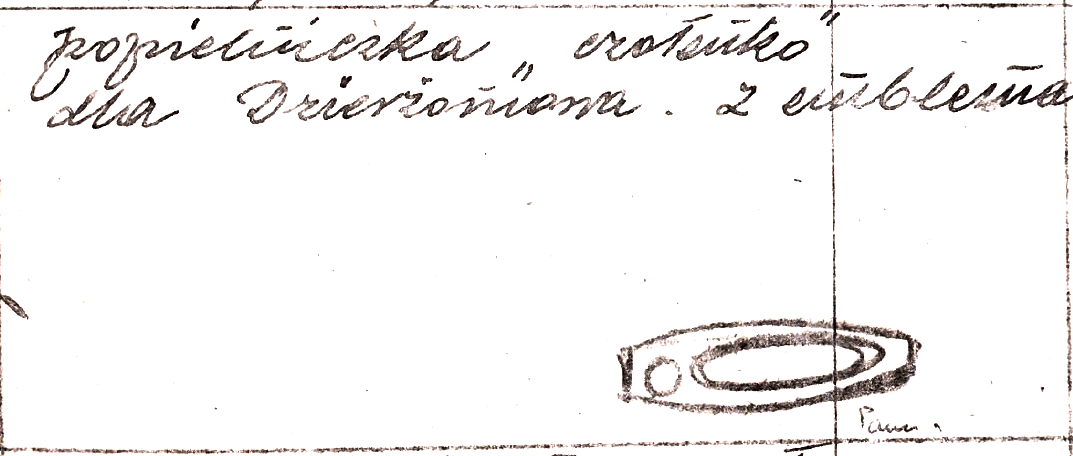 popielniczka „czołenko”
dla Dzierżoniowa. z emblema